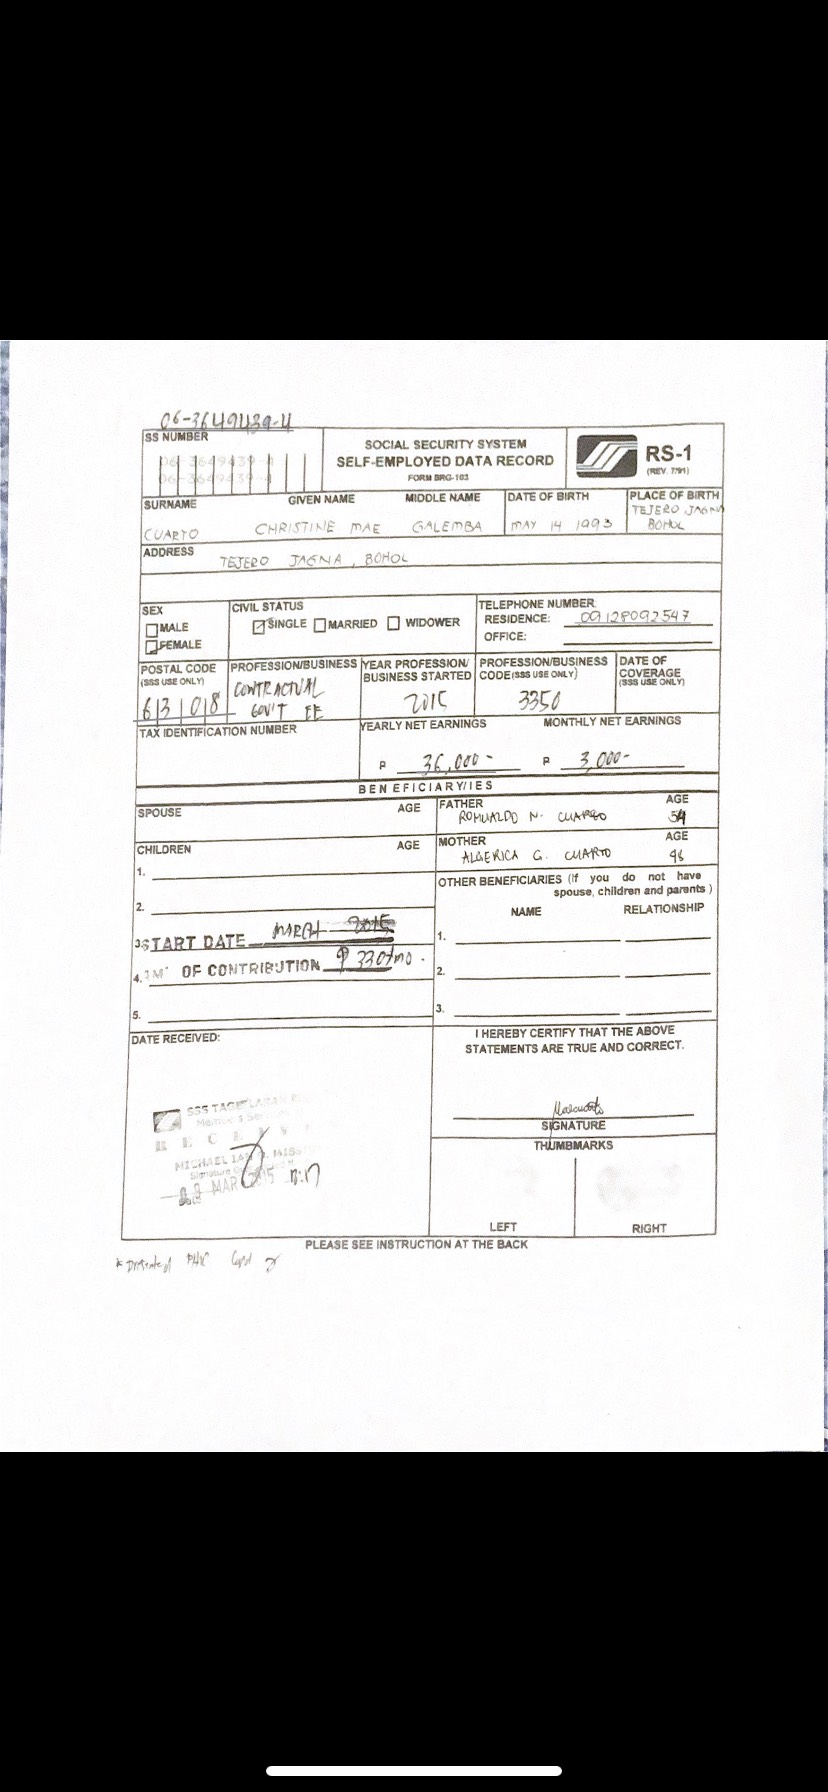 06-3649439-4
SS NUMBER
06-3649439-4
06-3649439-4
SOCIAL SECURITY SYSTEM
SELF-EMPLOYED DATA RECORD
FORM BRG-103
RS-1
(REV. 7/91)
SURNAME GIVEN NAME MIDDLE NAME DATE OF BIRTH PLACE OF BIRTH
CUARTO CHRISTINE MAE GALEMBA MAY 14 1993 TEJERO JAGNA
BOHOL
ADDRESS TEJERO JAGNA, BOHOL
SEX
MALE
FEMALE
CIVIL STATUS
SINGLE MARRIED WIDOWER
TELEPHONE NUMBER
RESIDENCE: 09128092547
OFFICE:
POSTAL CODE
(SSS USE ONLY)
6 3 0 8
PROFESSION/BUSINESS
CONTRACTUAL
GOV'T EE
YEAR PROFESSION/
BUSINESS STARTED
2015
PROFESSION/BUSINESS
CODE (SSS USE ONLY)
3350
DATE OF
COVERAGE
(SSS USE ONLY)
TAX IDENTIFICATION NUMBER
YEARLY NET EARNINGS MONTHLY NET EARNINGS
P 36,000- P 3,000-
BENEFICIARY/IES
SPOUSE AGE
FATHER AGE
ROMUALDO N. CUARTO 54
CHILDREN AGE
MOTHER AGE
G. CUARTO
1.
2.
3.
START DATE MARCH 2015
4.
OF CONTRIBUTION P 330/mo.
5.
OTHER BENEFICIARIES (If you do not have
spouse, children and parents)
NAME RELATIONSHIP
1.
2.
3.
DATE RECEIVED:
I HEREBY CERTIFY THAT THE ABOVE
STATEMENTS ARE TRUE AND CORRECT.
SIGNATURE
THUMBMARKS
LEFT RIGHT
SSS
MICHAEL
Signature
MAR
PLEASE SEE INSTRUCTION AT THE BACK